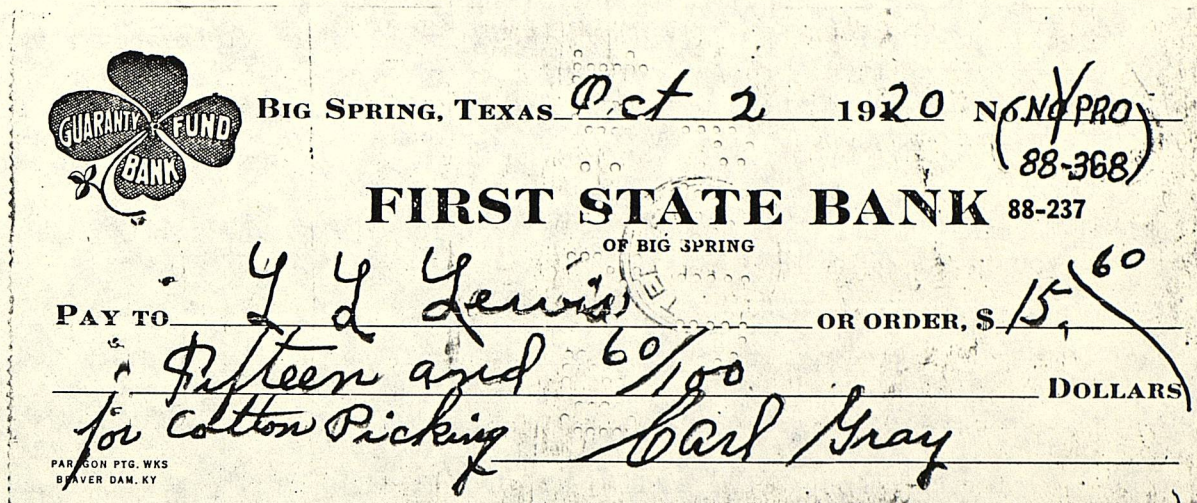 GUARANTY FUND
BANK
BIG SPRING, TEXAS Oct 2 1920 No.
88-368
FIRST STATE BANK 88-237
OF BIG SPRING
PAY TO L L Lewis OR ORDER, $ 15. 60
Fifteen and 60/100 DOLLARS
for Cotton Picking Carl Gray
PARAGON PTG. WKS
BEAVER DAM, KY